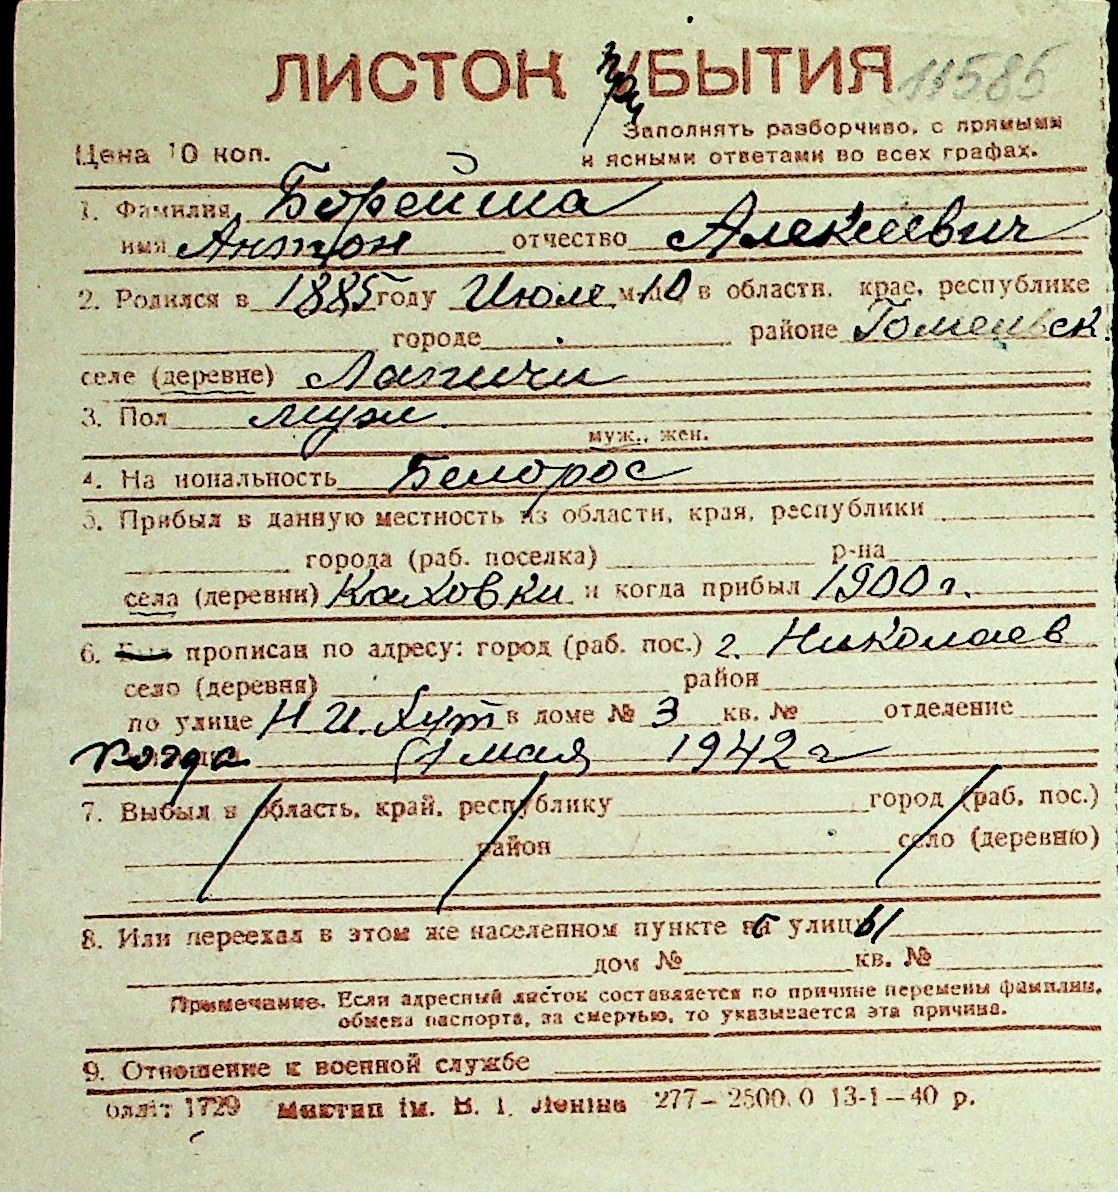 ЛИСТОК при УБЫТИЯ 11585
Заполнять разборчиво, с прямыми
Цена 10 коп. и ясными ответами во всех графах.
1. Фамилия Борейша
имя Антон отчество Алексеевич
2. Родился в 1885 году Июле м-це 10 в области, крае, республике
городе районе Гомельск
селе (деревне) Лапичи
3. Пол муж
муж., жен.
4. На иональность Белорос
5. Прибыл в данную местность из области, края, республики
города (раб. поселка) р-на
села (деревни) Каховки и когда прибыл 1900 г.
6. Был прописан по адресу: город (раб. пос.) г. Николаев
село (деревня) район
по улице Н. И. Хут в доме № 3 кв. № отделение
когда мая 1942 г
7. Выбыл в область, край, республику город (раб. пос.)
район село (деревню)
8. Или переехал в этом же населенном пункте с улицы
дом № кв. №
Примечание. Если адресный листок составляется по причине перемены фамилии,
обмена паспорта, за смертью, то указывается эта причина.
9. Отношение к военной службе
олліт 1729 Миктип ім. В. І. Леніна 277—2500.0 13-1—40 р.